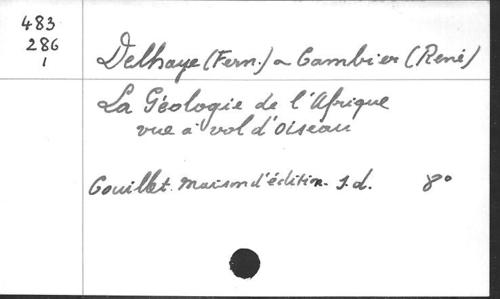 483
286
1
Delhaye (Fern.) & Cambier (René)
La Géologie de l'Afrique
vue à vol d'oiseau
Couillet. Maison d'édition. s.d. 8°